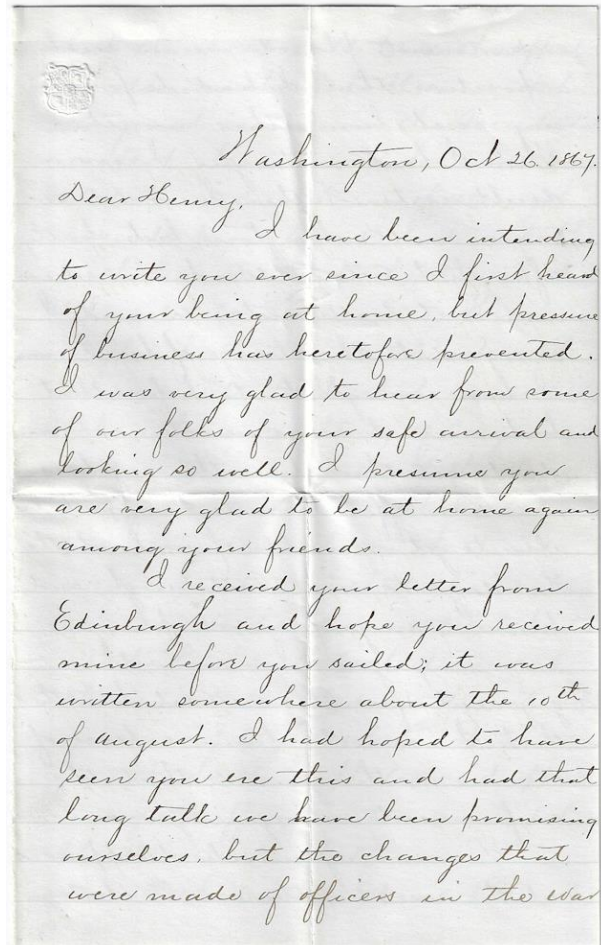 Washington, Oct 26. 1867.
Dear Henry,
I have been intending
to write you ever since I first heard
of your being at home, but pressure
of business has heretofore prevented.
I was very glad to hear from some
of our folks of your safe arrival and
looking so well. I presume you
are very glad to be at home again
among your friends.
I received your letter from
Edinburgh and hope you received
mine before you sailed; it was
written somewhere about the 10th
of august. I had hoped to have
seen you ere this and had that
long talk we have been promising
ourselves, but the changes that
were made of officers in the War